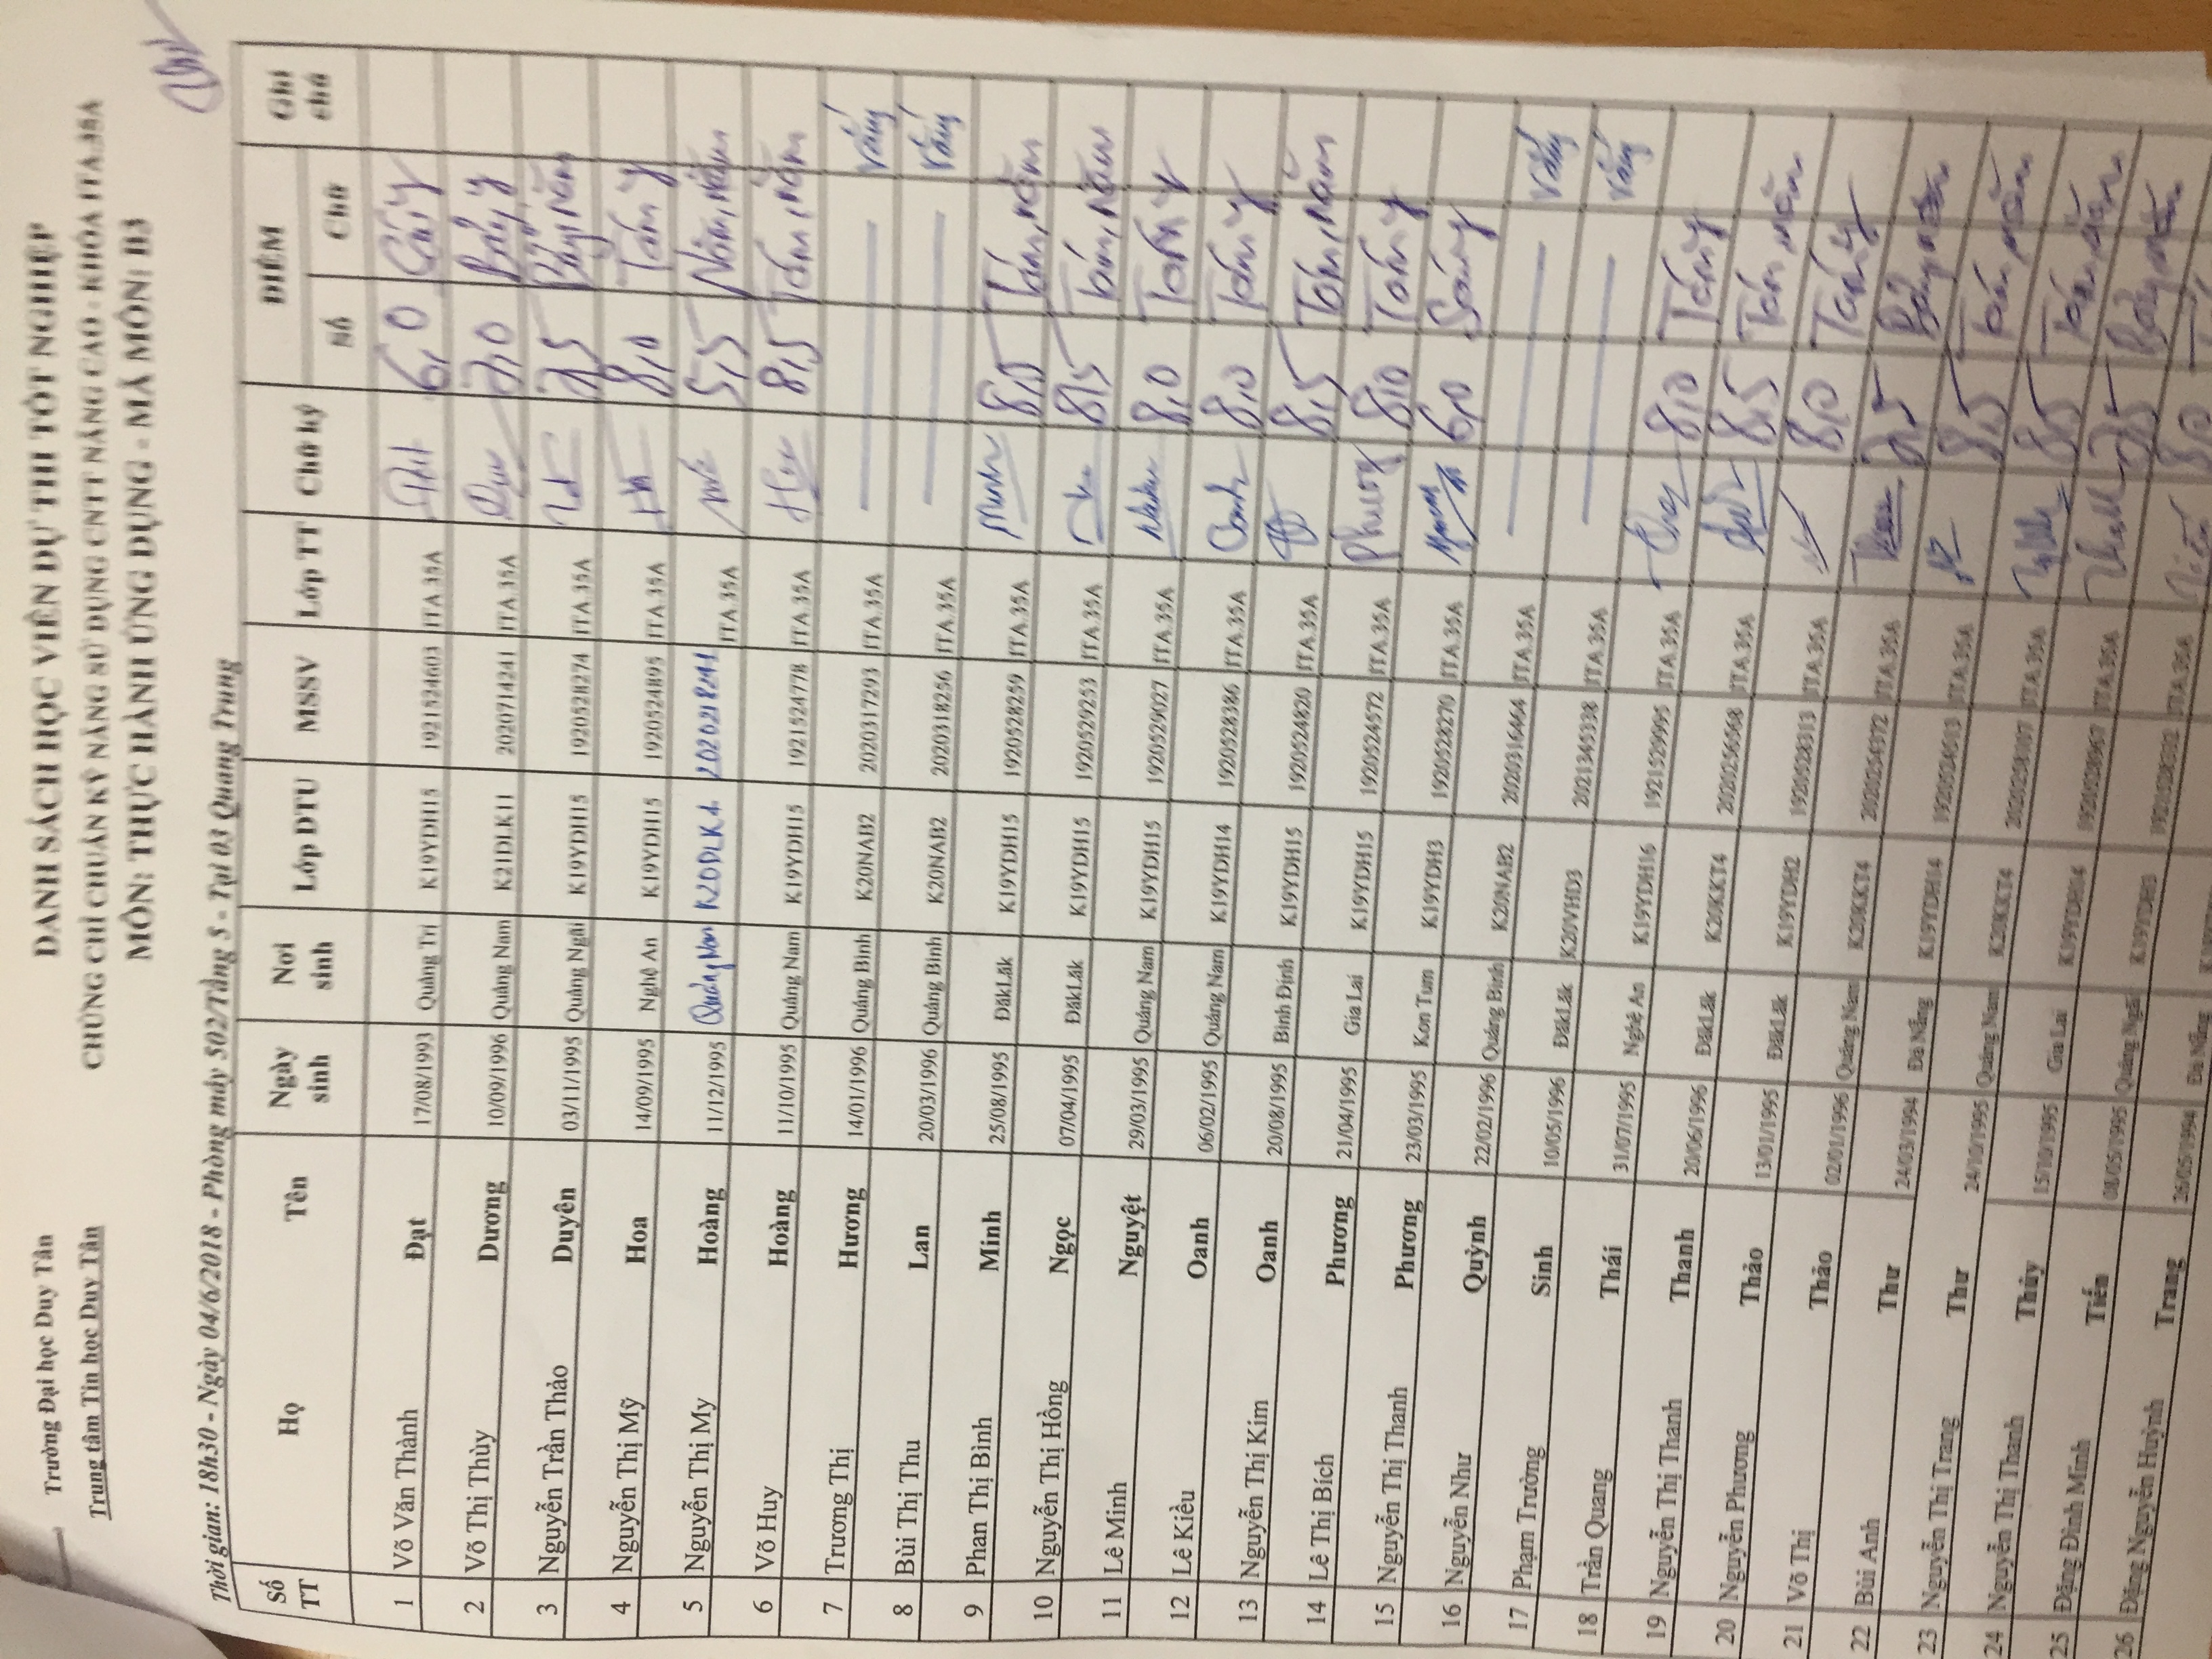 Trường Đại học Duy Tân
Trung tâm Tin học Duy Tân
DANH SÁCH HỌC VIÊN DỰ THI TỐT NGHIỆP
CHỨNG CHỈ CHUẨN KỸ NĂNG SỬ DỤNG CNTT NÂNG CAO - KHÓA ITA.35A
MÔN: THỰC HÀNH ỨNG DỤNG - MÃ MÔN: B3
Thời gian: 18h30 - Ngày 04/6/2018 - Phòng máy 502/Tầng 5 - Tại 03 Quang Trung
Số TT Họ Tên Ngày sinh Nơi sinh Lớp DTU MSSV Lớp TT Chữ ký ĐIỂM Số Chữ Ghi chú
1 Võ Văn Thành Đạt 17/08/1993 Quảng Trị K19YDH15 1921524603 ITA.35A 6,0 Sáu y
2 Võ Thị Thùy Dương 10/09/1996 Quảng Nam K21DLK11 2020714241 ITA.35A 7,0 Bảy y
3 Nguyễn Trần Thảo Duyên 03/11/1995 Quảng Ngãi K19YDH15 1920528274 ITA.35A 7,5 Bảy, năm
4 Nguyễn Thị Mỹ Hoa 14/09/1995 Nghệ An K19YDH15 1920524895 ITA.35A 8,0 Tám y
5 Nguyễn Thị My Hoàng 11/12/1995 Quảng Nam K20DLK1 2020218241 ITA.35A 5,5 Năm, năm
6 Võ Huy Hoàng 11/10/1995 Quảng Nam K19YDH15 1921524778 ITA.35A 8,5 Tám, năm
7 Trương Thị Hương 14/01/1996 Quảng Bình K20NAB2 2020317293 ITA.35A Vắng
8 Bùi Thị Thu Lan 20/03/1996 Quảng Bình K20NAB2 2020318256 ITA.35A Vắng
9 Phan Thị Bình Minh 25/08/1995 ĐăkLăk K19YDH15 1920528259 ITA.35A Minh 8,5 Tám, năm
10 Nguyễn Thị Hồng Ngọc 07/04/1995 ĐăkLăk K19YDH15 1920529253 ITA.35A 8,5 Tám, năm
11 Lê Minh Nguyệt 29/03/1995 Quảng Nam K19YDH15 1920529027 ITA.35A 8,0 Tám y
12 Lê Kiều Oanh 06/02/1995 Quảng Nam K19YDH14 1920528386 ITA.35A Oanh 8,0 Tám y
13 Nguyễn Thị Kim Oanh 20/08/1995 Bình Định K19YDH15 1920524820 ITA.35A 8,5 Tám, năm
14 Lê Thị Bích Phương 21/04/1995 Gia Lai K19YDH15 1920524572 ITA.35A Phương 8,0 Tám y
15 Nguyễn Thị Thanh Phương 23/03/1995 Kon Tum K19YDH3 1920528270 ITA.35A 6,0 Sáu y
16 Nguyễn Như Quỳnh 22/02/1996 Quảng Bình K20NAB2 2020316464 ITA.35A Vắng
17 Phạm Trường Sinh 10/05/1996 ĐăkLăk K20VHD3 2021345338 ITA.35A Vắng
18 Trần Quang Thái 31/07/1995 Nghệ An K19YDH16 1921529995 ITA.35A 8,0 Tám y
19 Nguyễn Thị Thanh Thanh 20/06/1996 ĐăkLăk K20KKT4 2020256568 ITA.35A 8,5 Tám, năm
20 Nguyễn Phương Thảo 13/01/1995 ĐăkLăk K19YDH2 1920528313 ITA.35A 8,0 Tám y
21 Võ Thị Thảo 02/01/1996 Quảng Nam K20KKT4 2020254372 ITA.35A 7,5 Bảy, năm
22 Bùi Anh Thư 24/03/1994 Đà Nẵng K19YDH14 ITA.35A 8,5 Tám, năm
23 Nguyễn Thị Trang Thư 24/10/1995 Quảng Nam K20KKT4 ITA.35A 8,5 Tám, năm
24 Nguyễn Thị Thanh Thủy 15/10/1995 Gia Lai K19YDH14 ITA.35A 7,5 Bảy, năm
25 Đặng Đình Minh Tiến 08/05/1995 Quảng Ngãi K19YDH3 ITA.35A 8,0
26 Đặng Nguyễn Huỳnh Trang 26/05/1994 Đà Nẵng